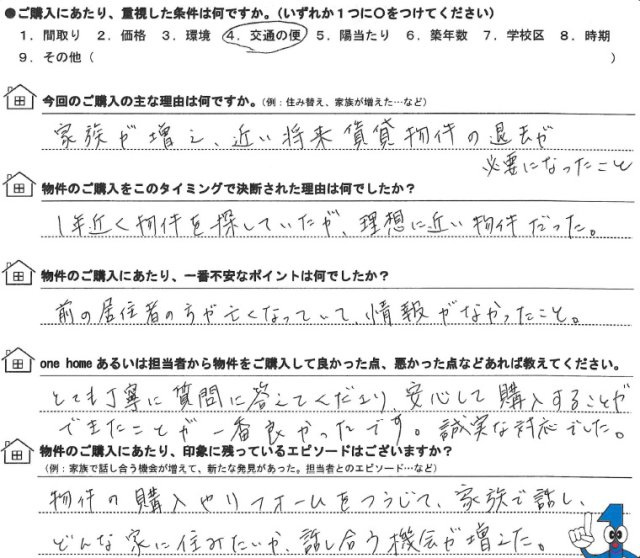 ●ご購入にあたり、重視した条件は何ですか。(いずれか１つに○をつけてください)
1. 間取り 2. 価格 3. 環境 4. 交通の便 5. 陽当たり 6. 築年数 7. 学校区 8. 時期
9. その他 ( )
今回のご購入の主な理由は何ですか。(例：住み替え、家族が増えた…など)
家族が増え、近い将来賃貸物件の退去が
必要になったこと
物件のご購入をこのタイミングで決断された理由は何でしたか？
1年近く物件を探していたが、理想に近い物件だった。
物件のご購入にあたり、一番不安なポイントは何でしたか？
前の居住者の方が亡くなっていて、情報がなかったこと。
one home あるいは担当者から物件をご購入して良かった点、悪かった点などあれば教えてください。
とても丁寧に質問に答えてくださり、安心して購入することが
できたことが一番良かったです。誠実な対応でした。
物件のご購入にあたり、印象に残っているエピソードはございますか？
(例：家族で話し合う機会が増えて、新たな発見があった。担当者とのエピソード…など)
物件の購入やリフォームをつうじて、家族で話し、
どんな家に住みたいか、話し合う機会が増えた。